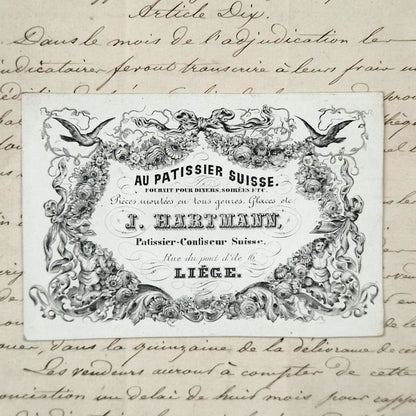 Article Dix.
Dans le mois de l'adjudication les
judicataires feront transcrire à leurs frais
AU PATISSIER SUISSE.
FOURNIT POUR DINERS, SOIRÉES ETC.
Pièces montées en tous genres, Glaces etc.
J. HARTMANN,
Patissier-Confiseur Suisse.
Rue du pont d'île 16
LIÉGE.
dans la quinzaine de la délivrance de
Les vendeurs auront à compter de cette
un délai de huit mois pour